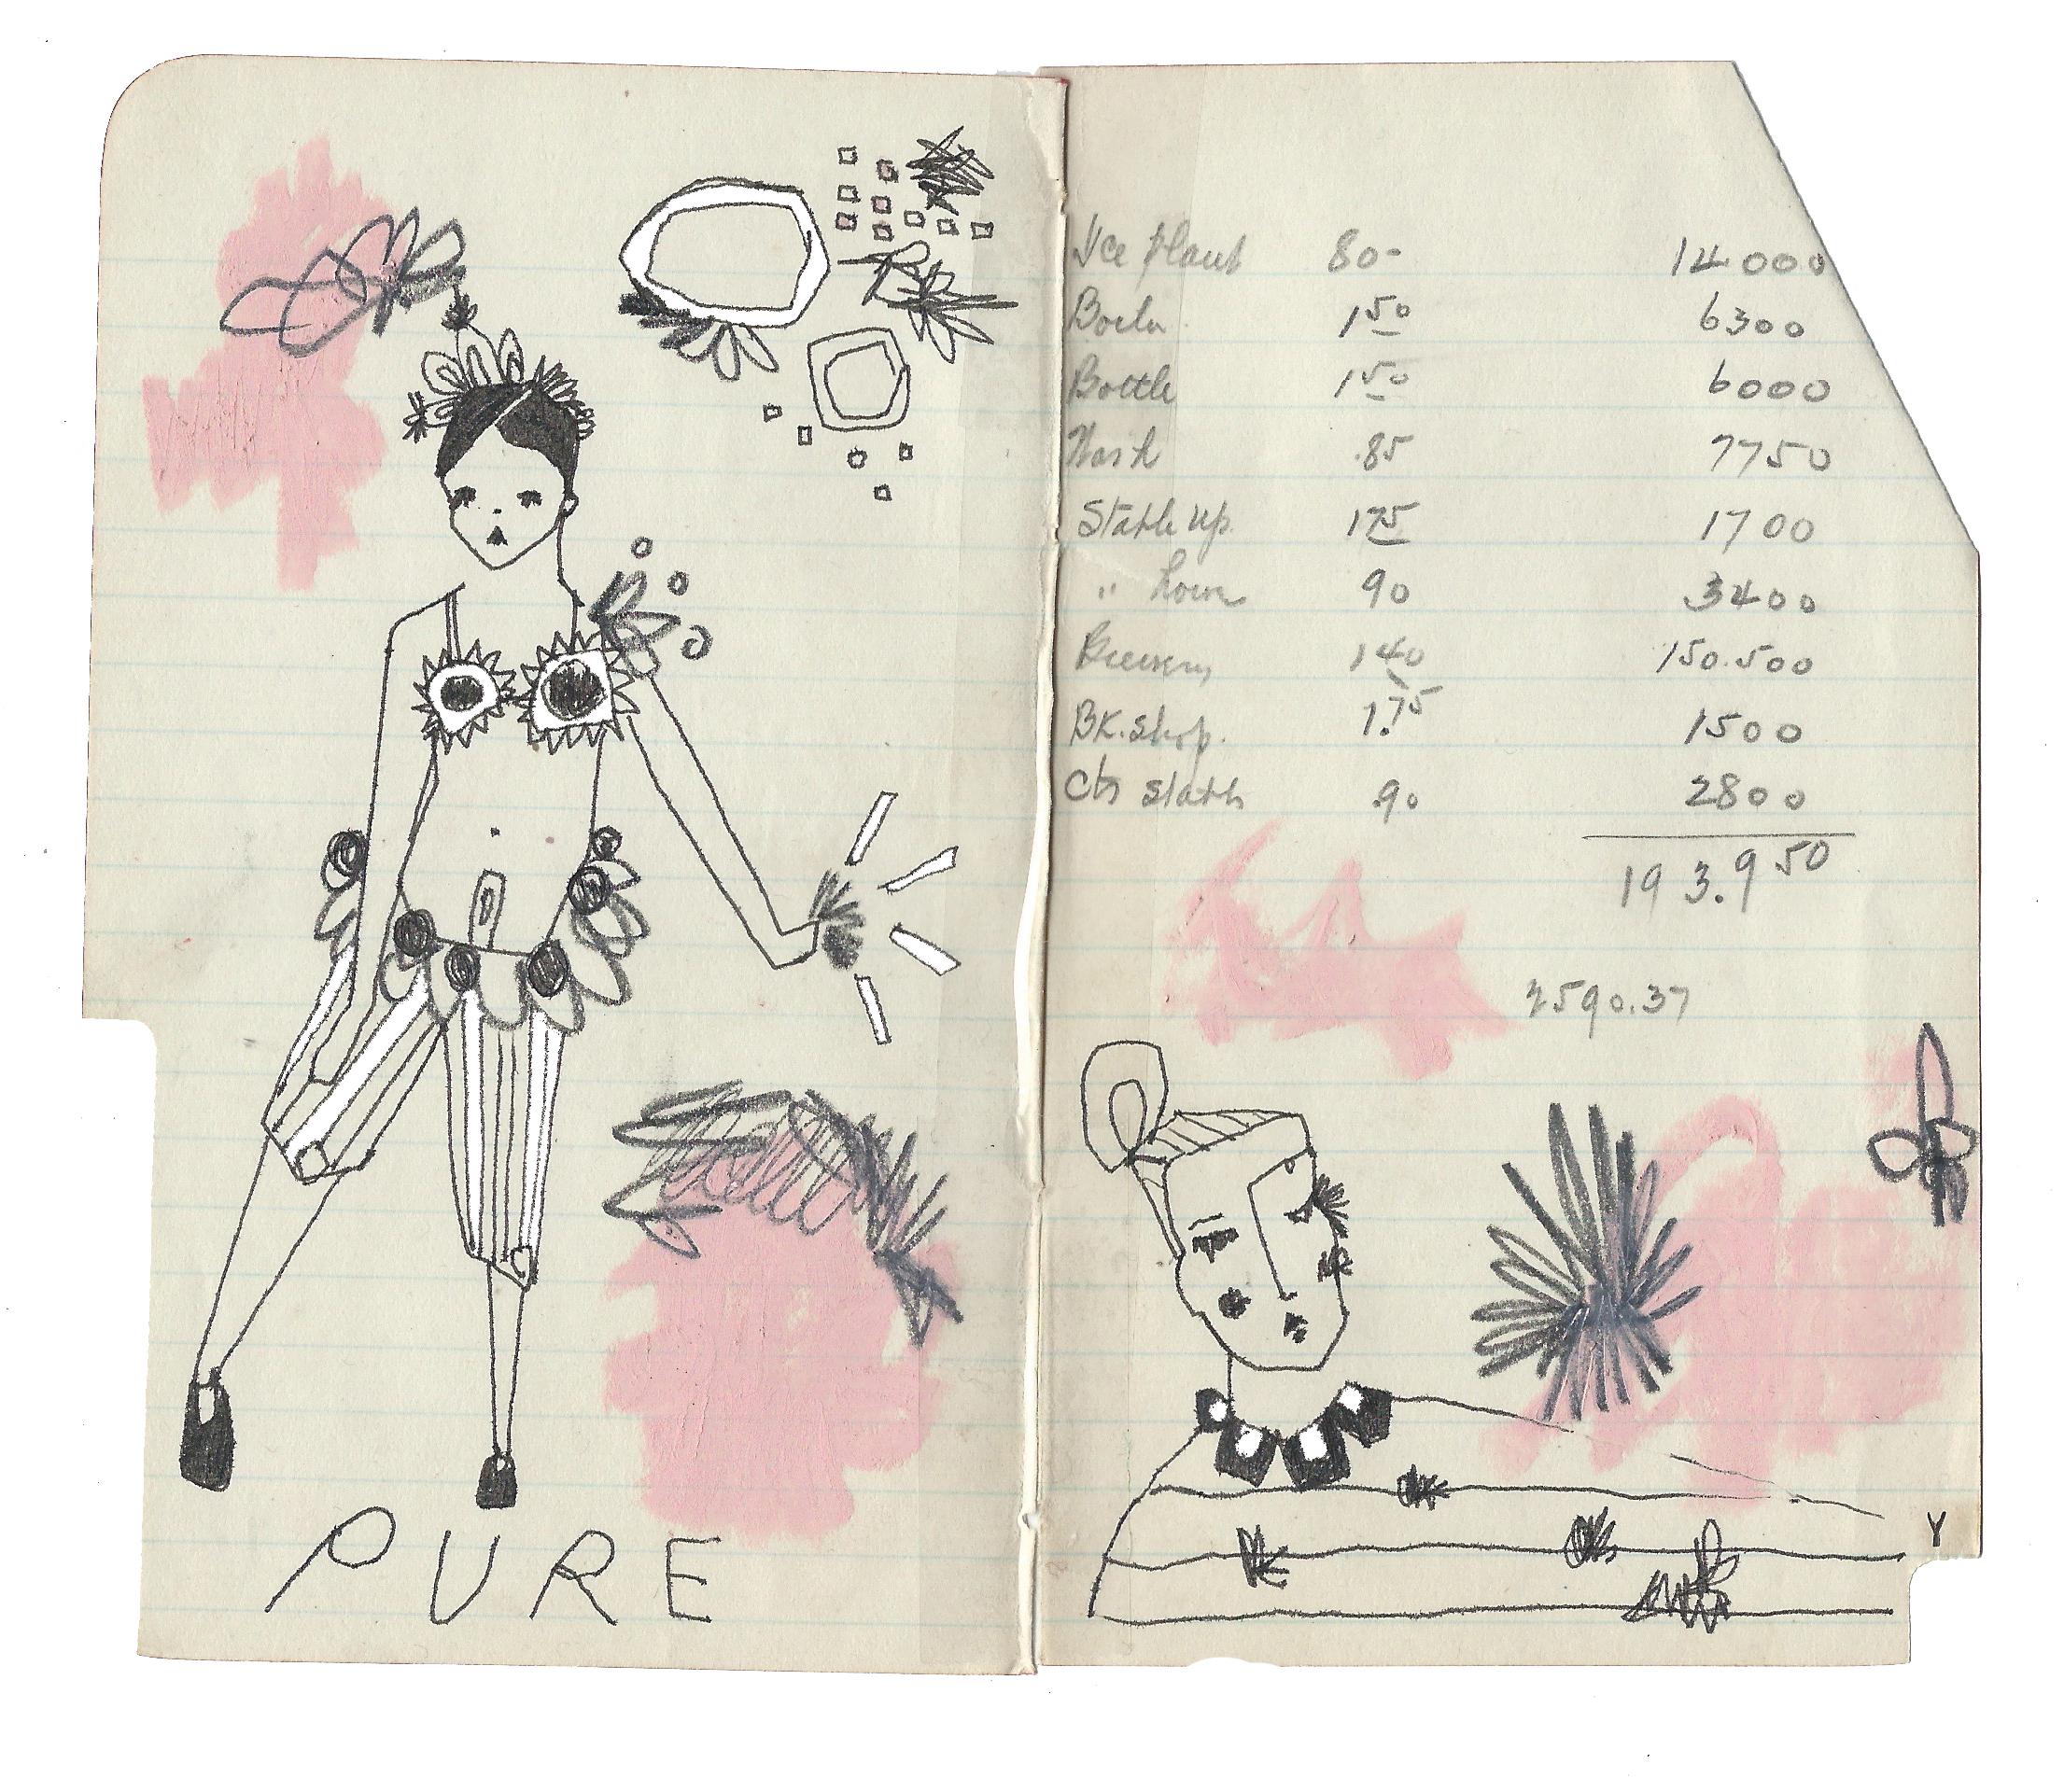 PURE
Ice Plant 80- 14000
1 50 6300
Bottle 1 50 6000
.85 7750
Stable up. 1 75 1700
" 90 3400
Brewery 1 40 150.500
BK. Shop. 1.75 1500
Stable .90 2800
193.950
2590.37
Y